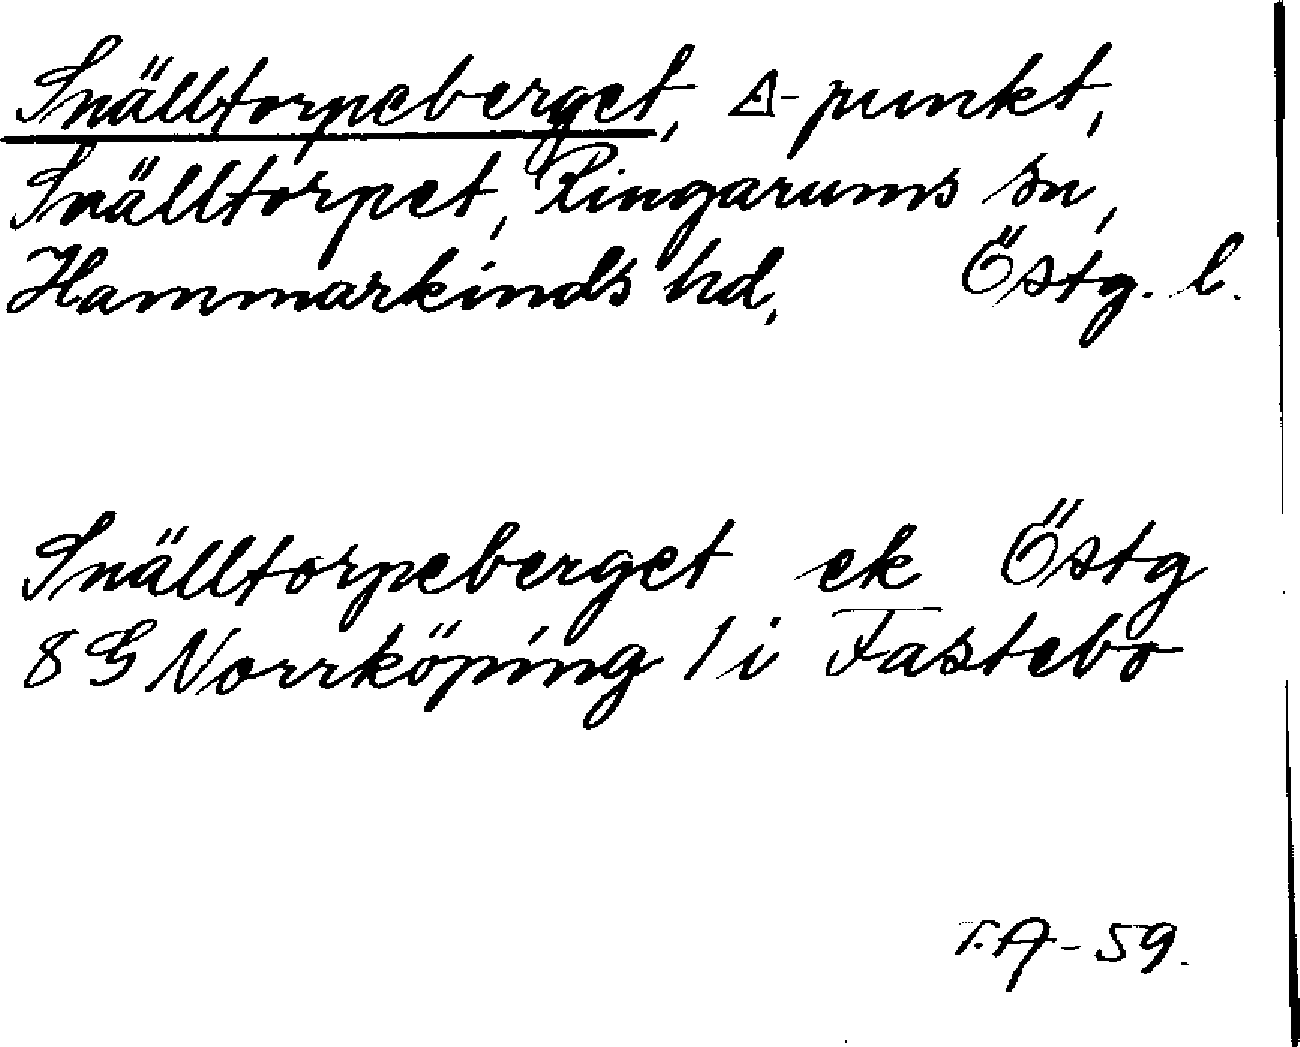 Snälltorpeberget, △-punkt,
Snälltorpet, Ringarums sn,
Hammarkinds hd, Östg. l.
Snälltorpeberget ek Östg
8 G Norrköping 1 i Fastebo
T.A-59.